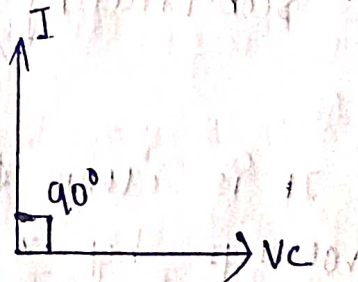 I
90°
VC